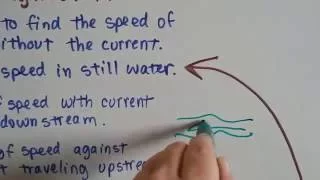 to find the speed of
without the current.
speed in still water.
of speed with current
downstream.
of speed against
traveling upstream